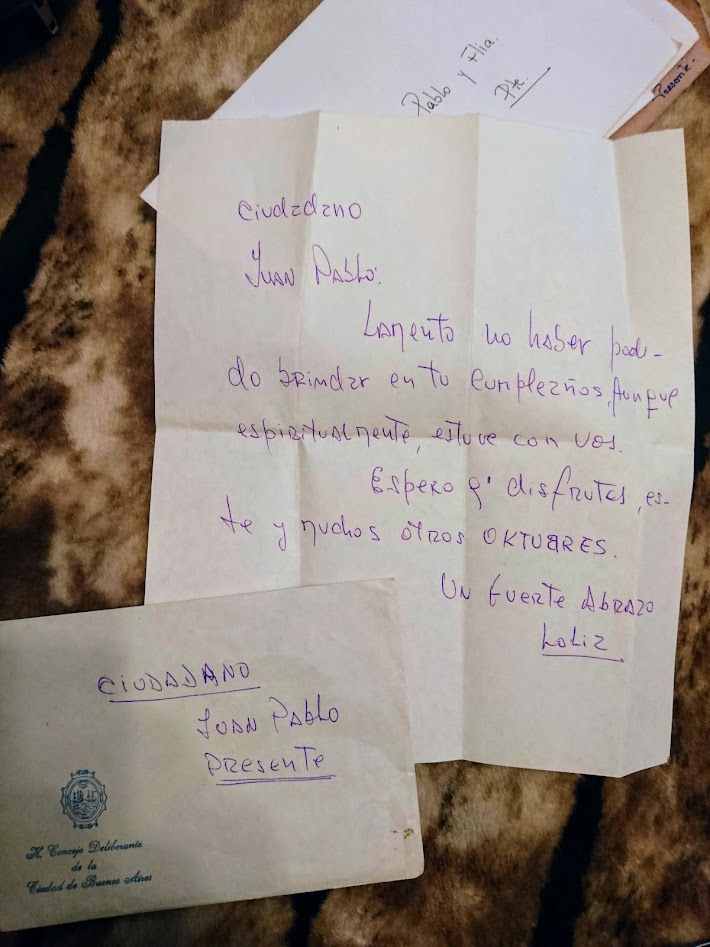 Pablo y Flia.
Pte.
Presente.
Ciudadano
Juan Pablo:
Lamento no haber podi-
do brindar en tu cumpleaños, Aunque
espiritualmente, estuve con vos.
Espero q' disfrutes, es-
te y muchos otros OKTUBRES.
Un fuerte Abrazo
CIUDADANO
Juan Pablo
PRESENTE
H. Concejo Deliberante
de la
Ciudad de Buenos Aires